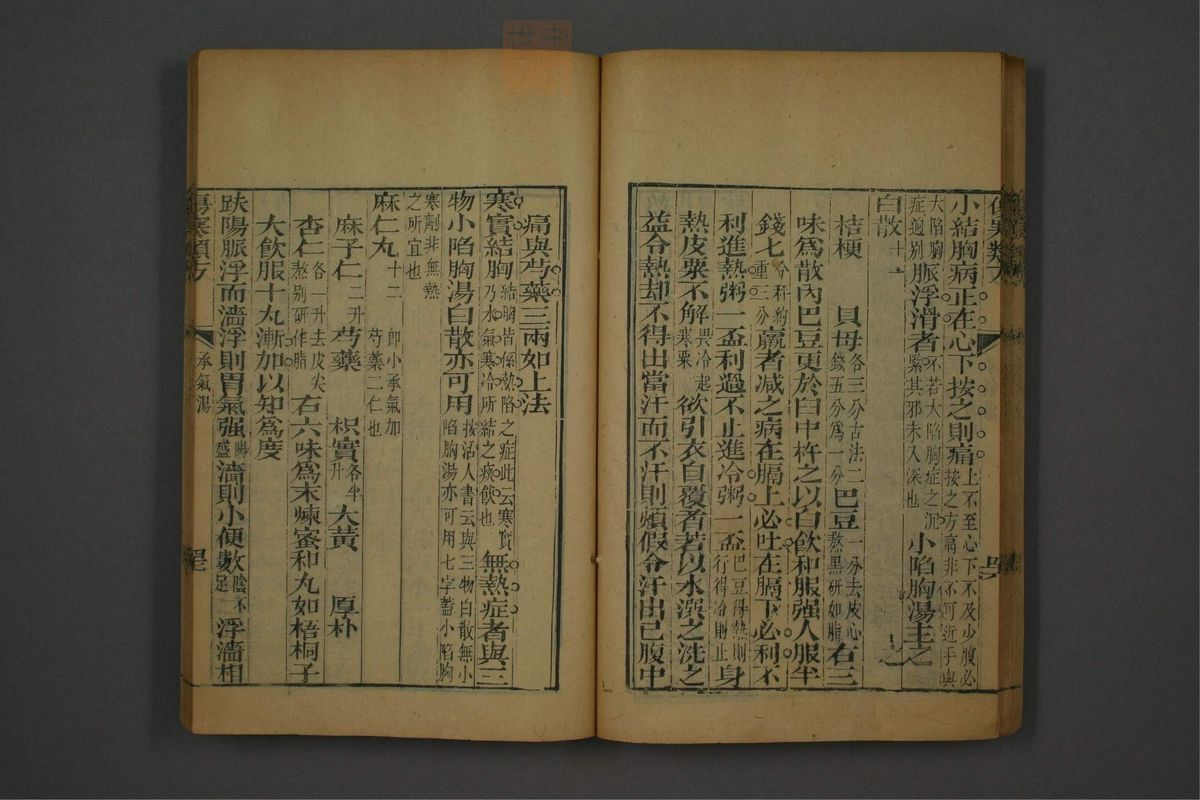 小結胸病正在心下按之則痛上不至心下不及少腹必按之方痛非不可近手與
大陷胸症逈別脈浮滑者不若大陷胸症之沉緊其邪未入深也小陷胸湯主之
白散十一
桔梗 貝母各三分古法二錢五分爲一分巴豆一分去皮心熬黑研如脂右三
味爲散內巴豆更於臼中杵之以白飲和服强人服半
錢七今秤約重三分羸者減之病在膈上必吐在膈下必利不
利進熱粥一盃利過不止進冷粥一盃巴豆得熱則行得冷則止身
熱皮粟不解畏冷起寒粟欲引衣自覆者若以水潠之洗之
益令熱却不得出當汗而不汗則煩假令汗出已腹中
痛與芍藥三兩如上法
寒實結胸結胸皆係熱陷之症此云寒實乃水氣寒冷所結之痰飲也無熱症者與三
物小陷胸湯白散亦可用按活人書云與三物白散無小陷胸湯亦可用七字蓋小陷胸
寒劑非無熱之所宜也
麻仁丸十二 卽小承氣加芍藥二仁也
麻子仁二升 芍藥 枳實各半升 大黃 厚朴
杏仁各一升去皮尖熬別研作脂 右六味爲末煉蜜和丸如梧桐子
大飲服十丸漸加以知爲度
趺陽脈浮而濇浮則胃氣强陽盛濇則小便數陰不足浮濇相
傷寒類方 承氣湯